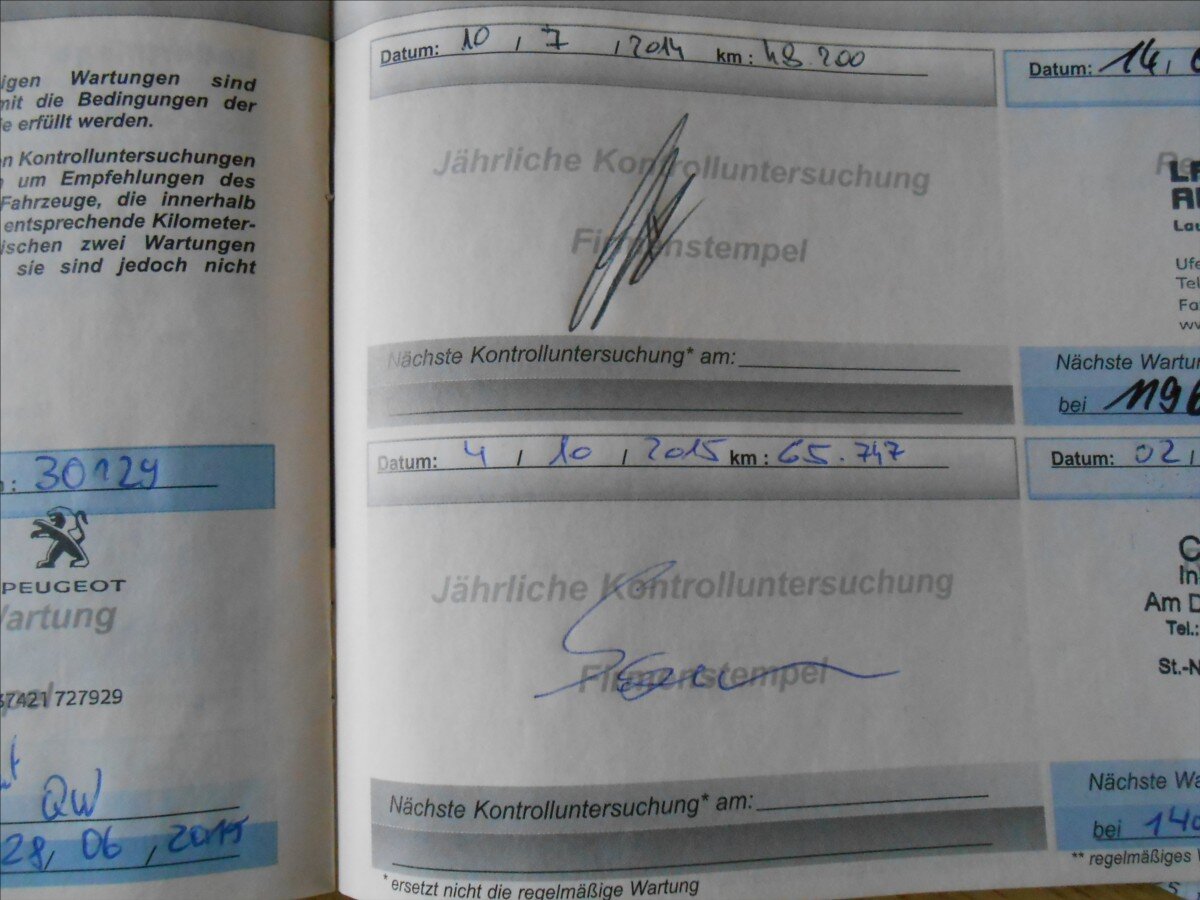 igen Wartungen sind
mit die Bedingungen der
e erfüllt werden.
n Kontrolluntersuchungen
um Empfehlungen des
Fahrzeuge, die innerhalb
entsprechende Kilometer-
ischen zwei Wartungen
sie sind jedoch nicht
: 30129
PEUGEOT
Wartung
37421 727929
QW
28, 06, 2015
Datum: 10, 7, 2014 km: 48.200
Jährliche Kontrolluntersuchung
Firmenstempel
Nächste Kontrolluntersuchung* am:
Datum: 4, 10, 2015 km: 65.747
Jährliche Kontrolluntersuchung
Firmenstempel
Nächste Kontrolluntersuchung* am:
*ersetzt nicht die regelmäßige Wartung
Datum: 14,
Lau
Ufe
Tel
Fa
ww
Nächste Wartun
bei 1196
Datum: 02,
C
In
Am D
Tel.:
St.-N
Nächste Wa
bei 140
** regelmäßiges W